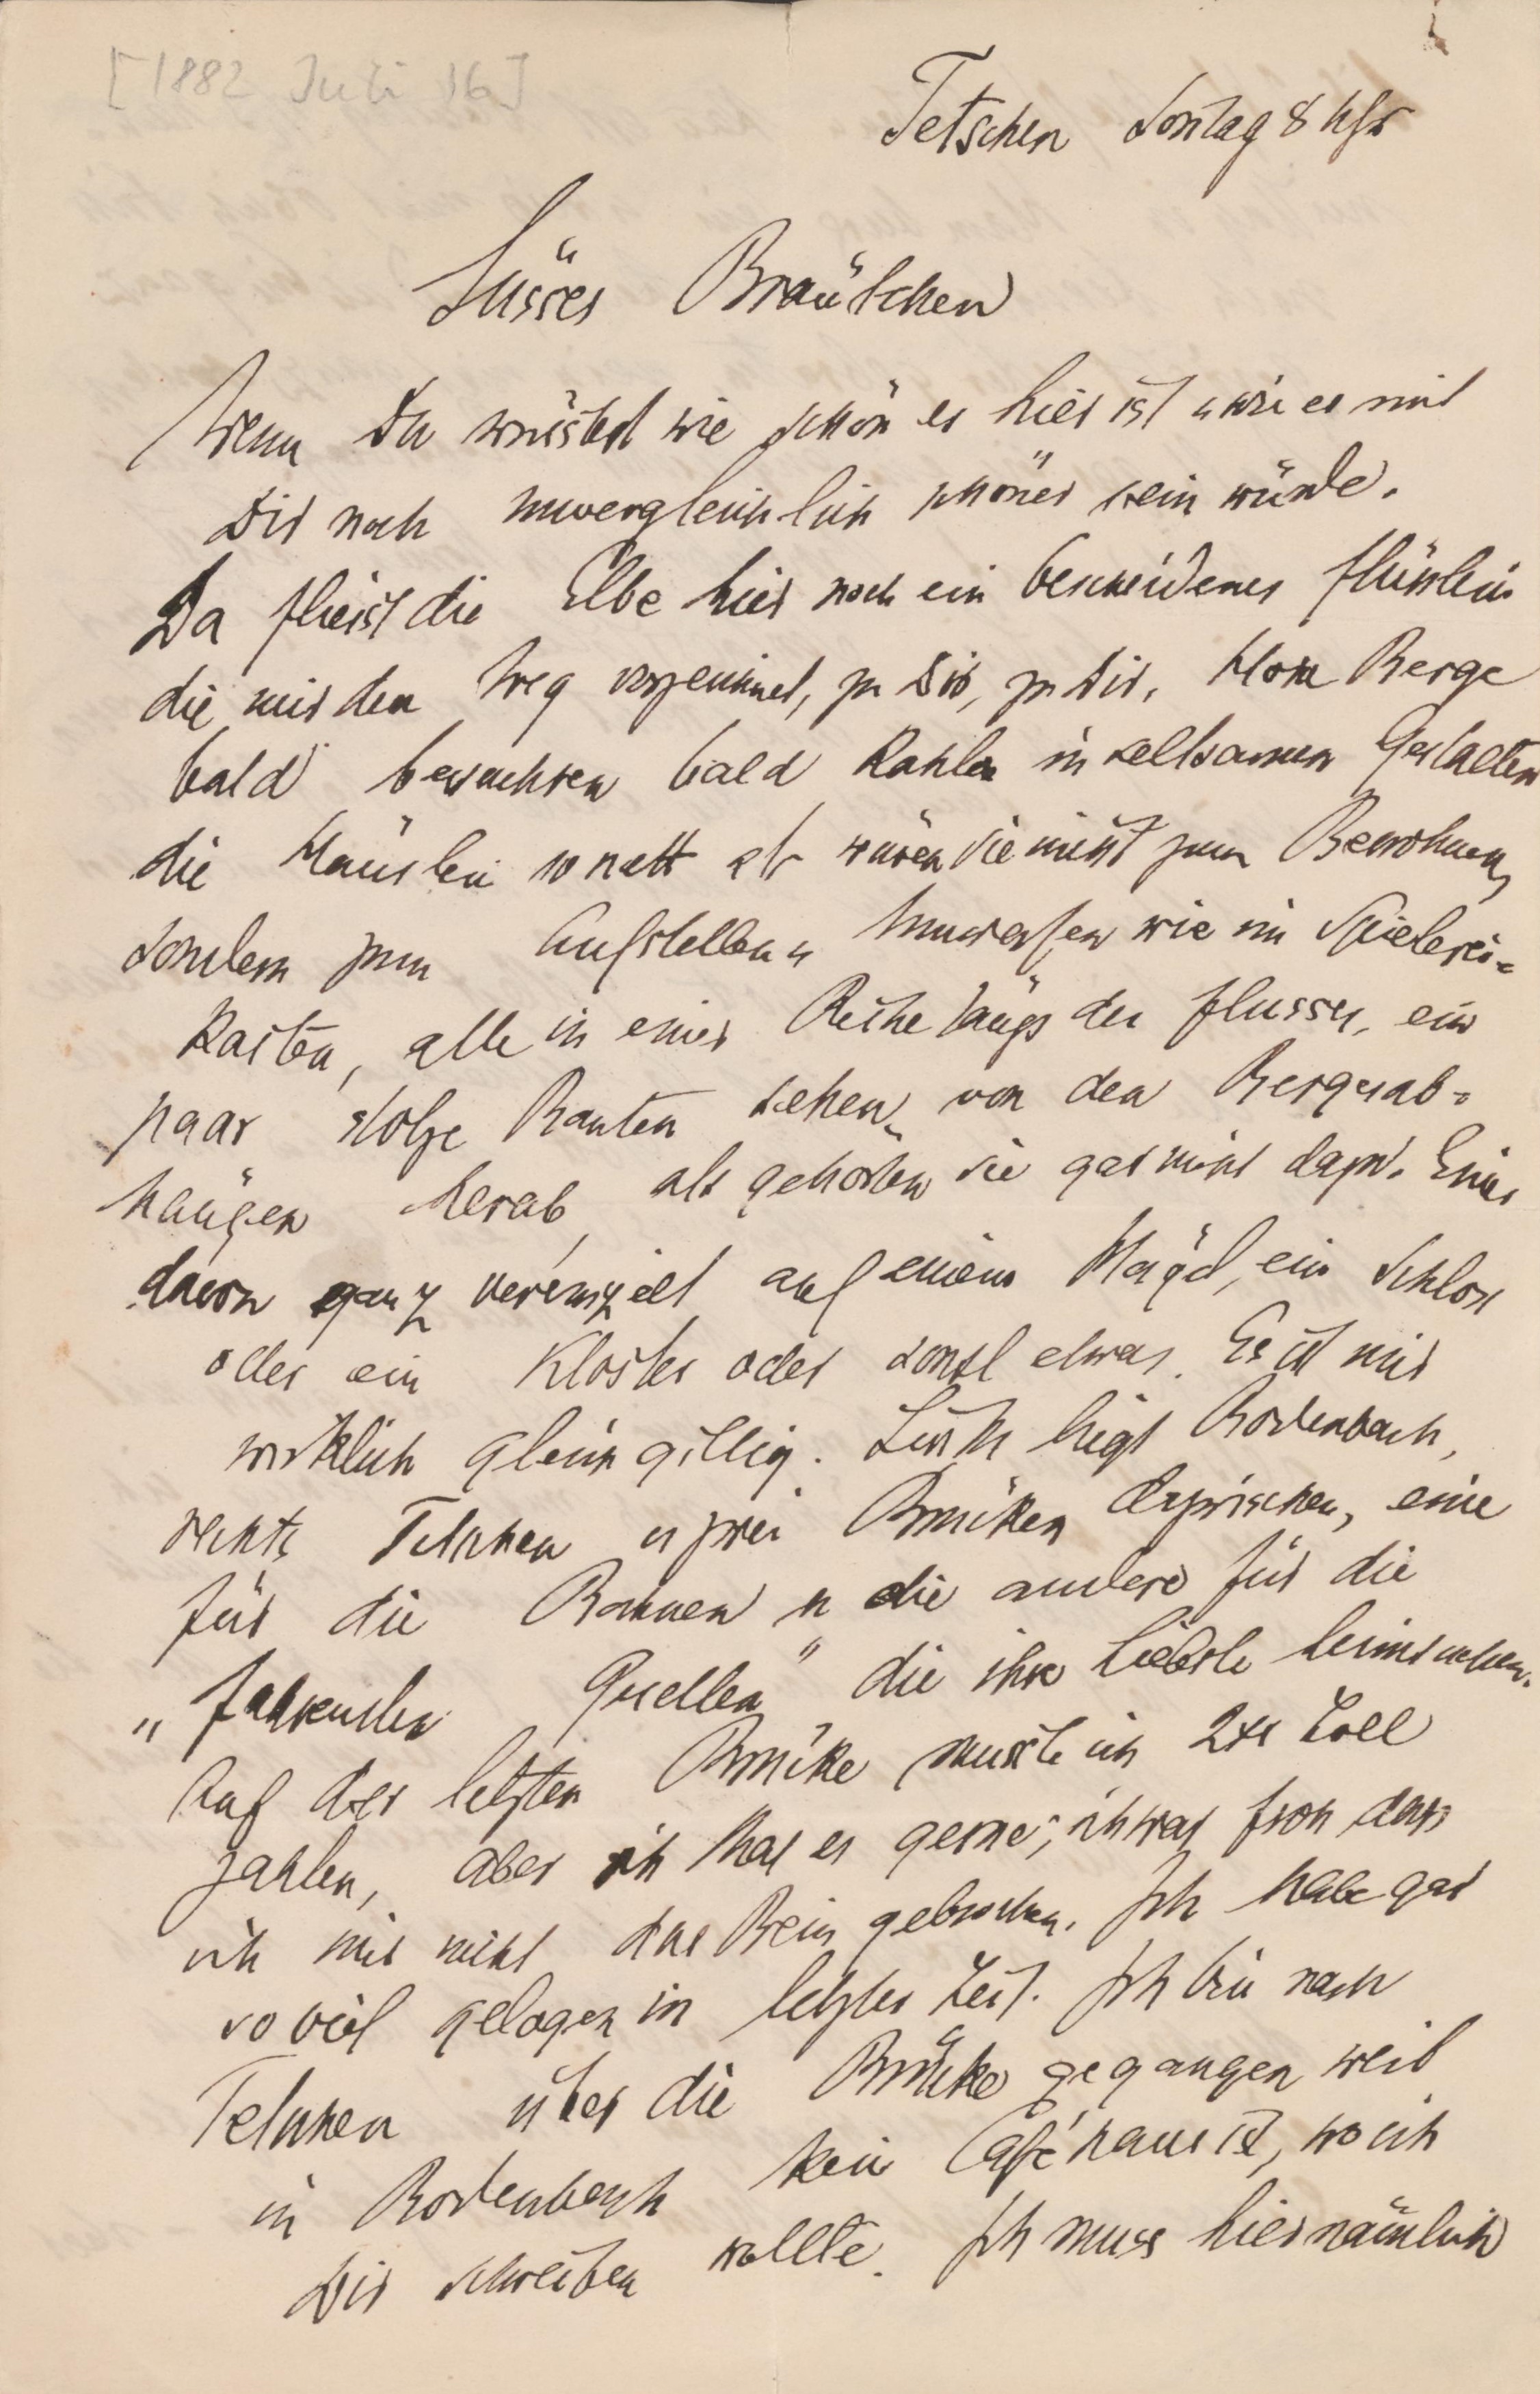 [1882 Juli 16]
Tetschen Sontag 8 Uhr
Süsses Bräutchen
Wenn Du wüsstest wie schön es hier ist u wie es mit
Dir noch unvergleichlich schöner sein würde.
Da fliesst die Elbe hier noch ein bescheidenes Flüsslein
die mir den Weg vorzeichnet, zu Dir, zu Dir, Berge
bald bewachsen bald kahl in seltsamen Gestalten
die Häuslein so nett als wären sie nicht zum Bewohnen,
sondern zum Aufstellen u Umwerfen wie im Spielerei-
kasten, alle in einer Reihe längs des Flusses, ein
paar stolze Bauten sehen von den Bergesab-
hängen herab, als gehörten sie gar nicht dazu. Eines
davon ganz vereinzelt auf einem Hügel, ein Schloss
oder ein Kloster oder sonst etwas. Es ist mir
wirklich gleichgiltig. Links liegt Bodenbach,
rechts Tetschen u zwei Brücken dazwischen, eine
für die Bahnen u die andere für die
„fahrenden Gesellen" die ihre Liebste heimsuchen.
Auf der letzten Brücke musste ich 2 xr Zoll
zahlen, aber ich that es gerne; ich war froh dass
ich mir nicht das Bein gebrochen. Ich habe gar
so viel gelogen in letzter Zeit. Ich bin nach
Tetschen über die Brücke gegangen weil
in Bodenbach kein Caféhaus ist, wo ich
Dir schreiben wollte. Ich muss hier nämlich